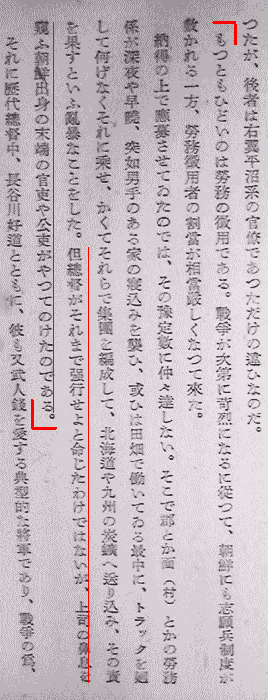 つたが、後者は右翼平沼系の官僚であつただけの違ひなのだ。
もつともひどいのは勞務の徴用である。戰爭が次第に苛烈になるに從つて、朝鮮にも志願兵制度が
敷かれる一方、勞務徴用者の割當が相當嚴しくなつて來た。
納得の上で應募させてゐたのでは、その豫定數に仲々達しない。そこで郡とか面（村）とかの勞務
係が深夜や早曉、突如男手のある家の寢込みを襲ひ、或ひは田畑で働いてゐる最中に、トラックを廻
して何げなくそれに乘せ、かくてそれらで集團を編成して、北海道や九州の炭鑛へ送り込み、その責
を果すといふ亂暴なことをした。但總督がそれまで强行せよと命じたわけではないが、上司の鼻息を
窺ふ朝鮮出身の末端の官吏や公吏がやつてのけたのである。
それに歷代總督中、長谷川好道とともに、彼も又武人錢を愛する典型的な將軍であり、戰爭の爲、